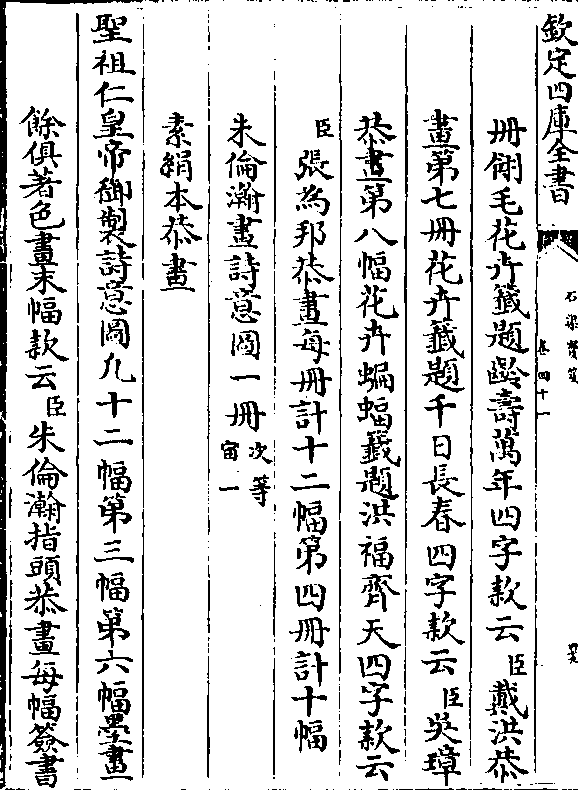 欽定四庫全書
石渠寶笈
卷四十一
冊翎毛花卉籤題齡壽萬年四字款云臣戴洪恭
畫第七冊花卉籤題千日長春四字款云臣吳璋
恭畫第八幅花卉蝙蝠籤題洪福齊天四字款云
臣張為邦恭畫每冊計十二幅第四冊計十幅
朱倫瀚畫詩意圖一冊次等宙一
素絹本恭畫
聖祖仁皇帝御製詩意圖凡十二幅第三幅第六幅墨畫
餘俱著色畫末幅款云臣朱倫瀚指頭恭畫每幅簽書